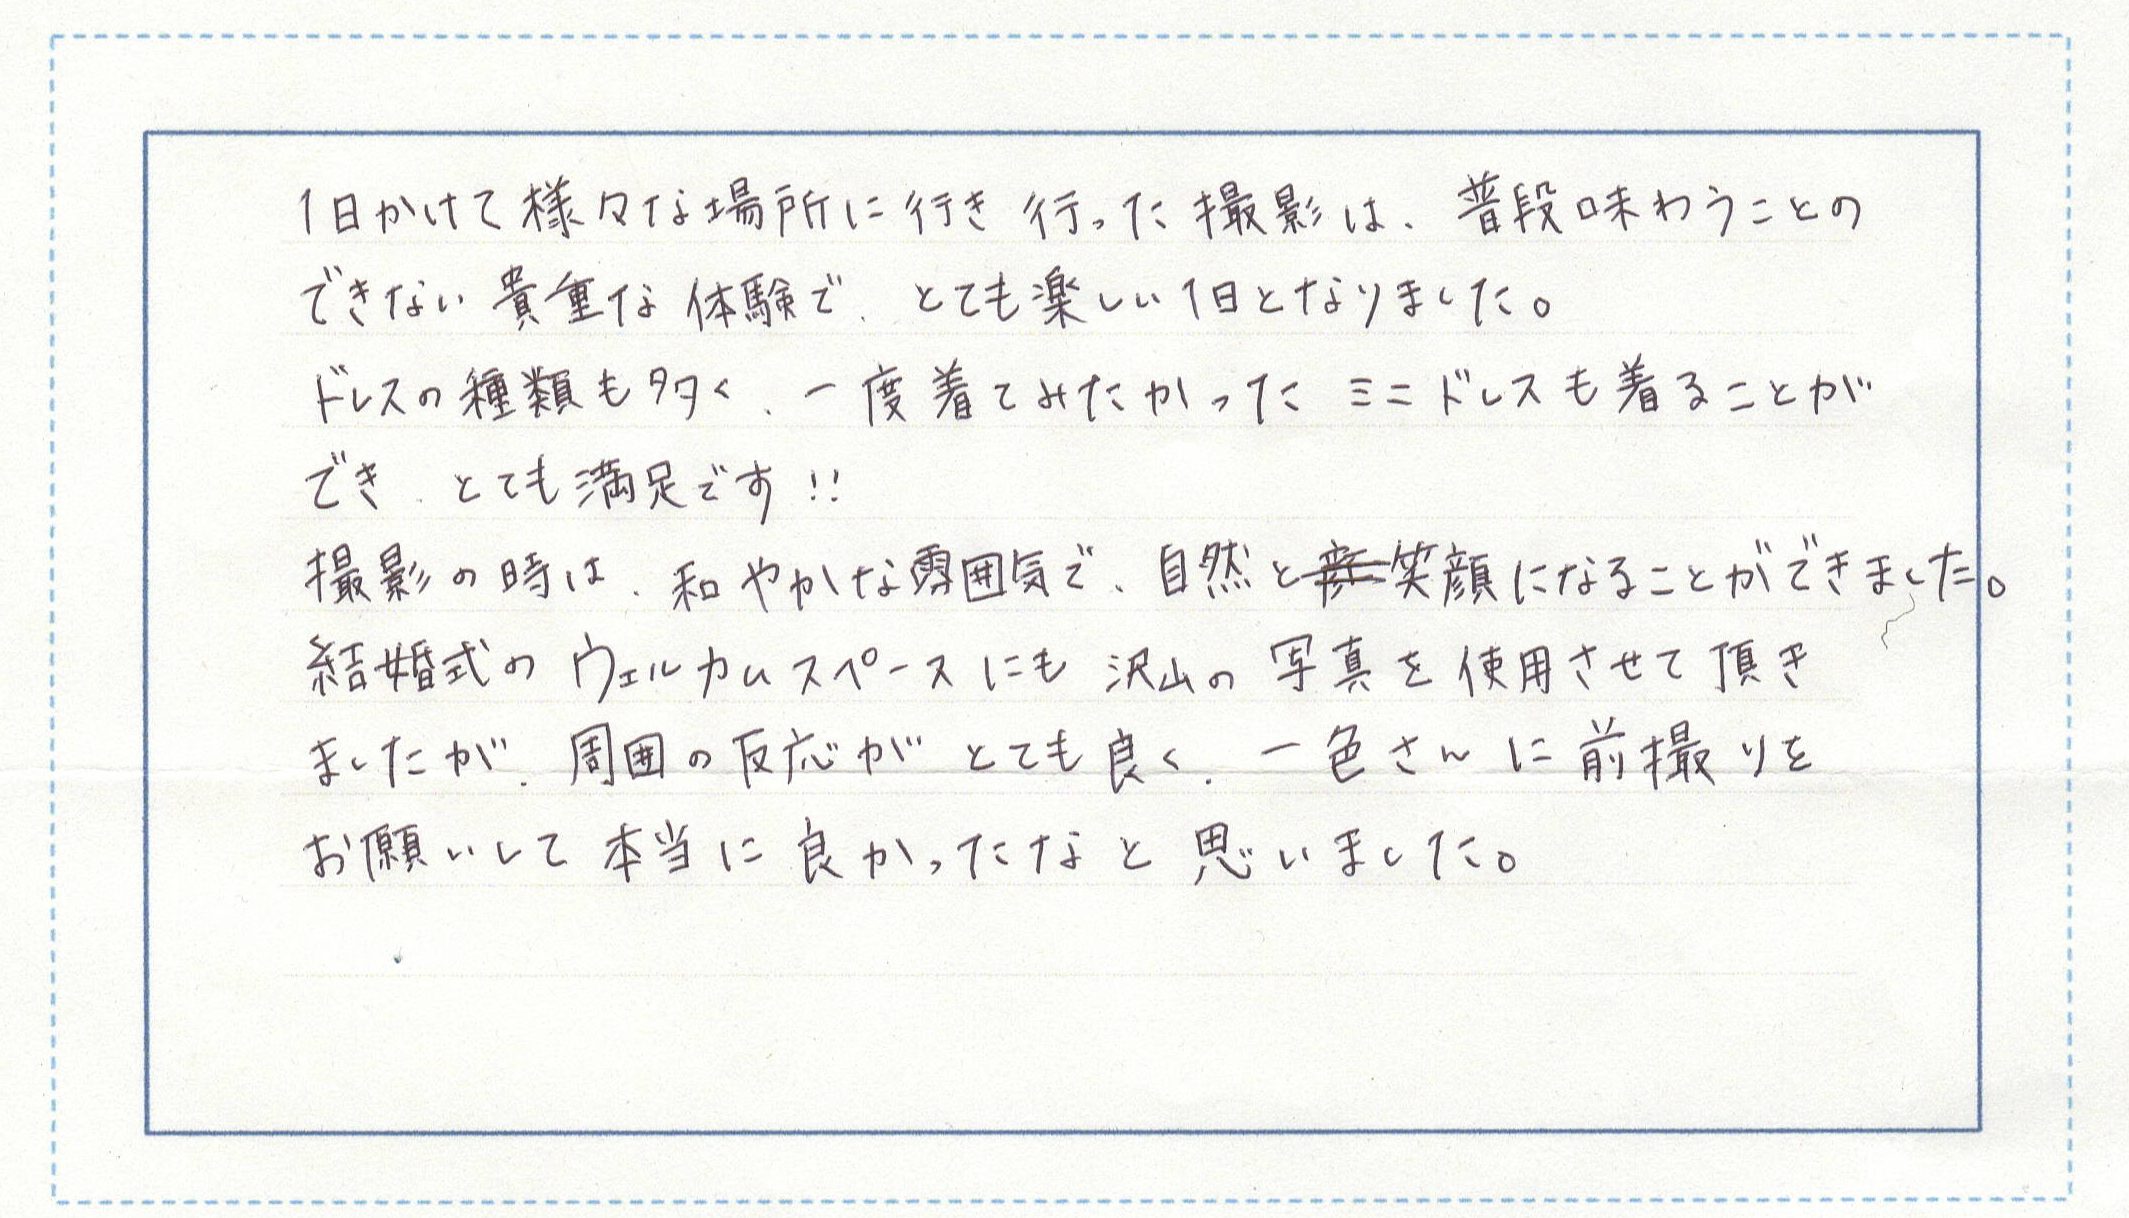 1日かけて様々な場所に行き行った撮影は、普段味わうことの
できない貴重な体験で、とても楽しい1日となりました。
ドレスの種類も多く、一度着てみたかったミニドレスも着ることが
でき、とても満足です!!
撮影の時は、和やかな雰囲気で、自然と笑顔になることができました。
結婚式のウェルカムスペースにも沢山の写真を使用させて頂き
ましたが、周囲の反応がとても良く、一色さんに前撮りを
お願いして本当に良かったなと思いました。